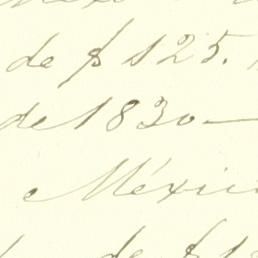 de $ 125.
de 1830—
e Méxi
de $ 1